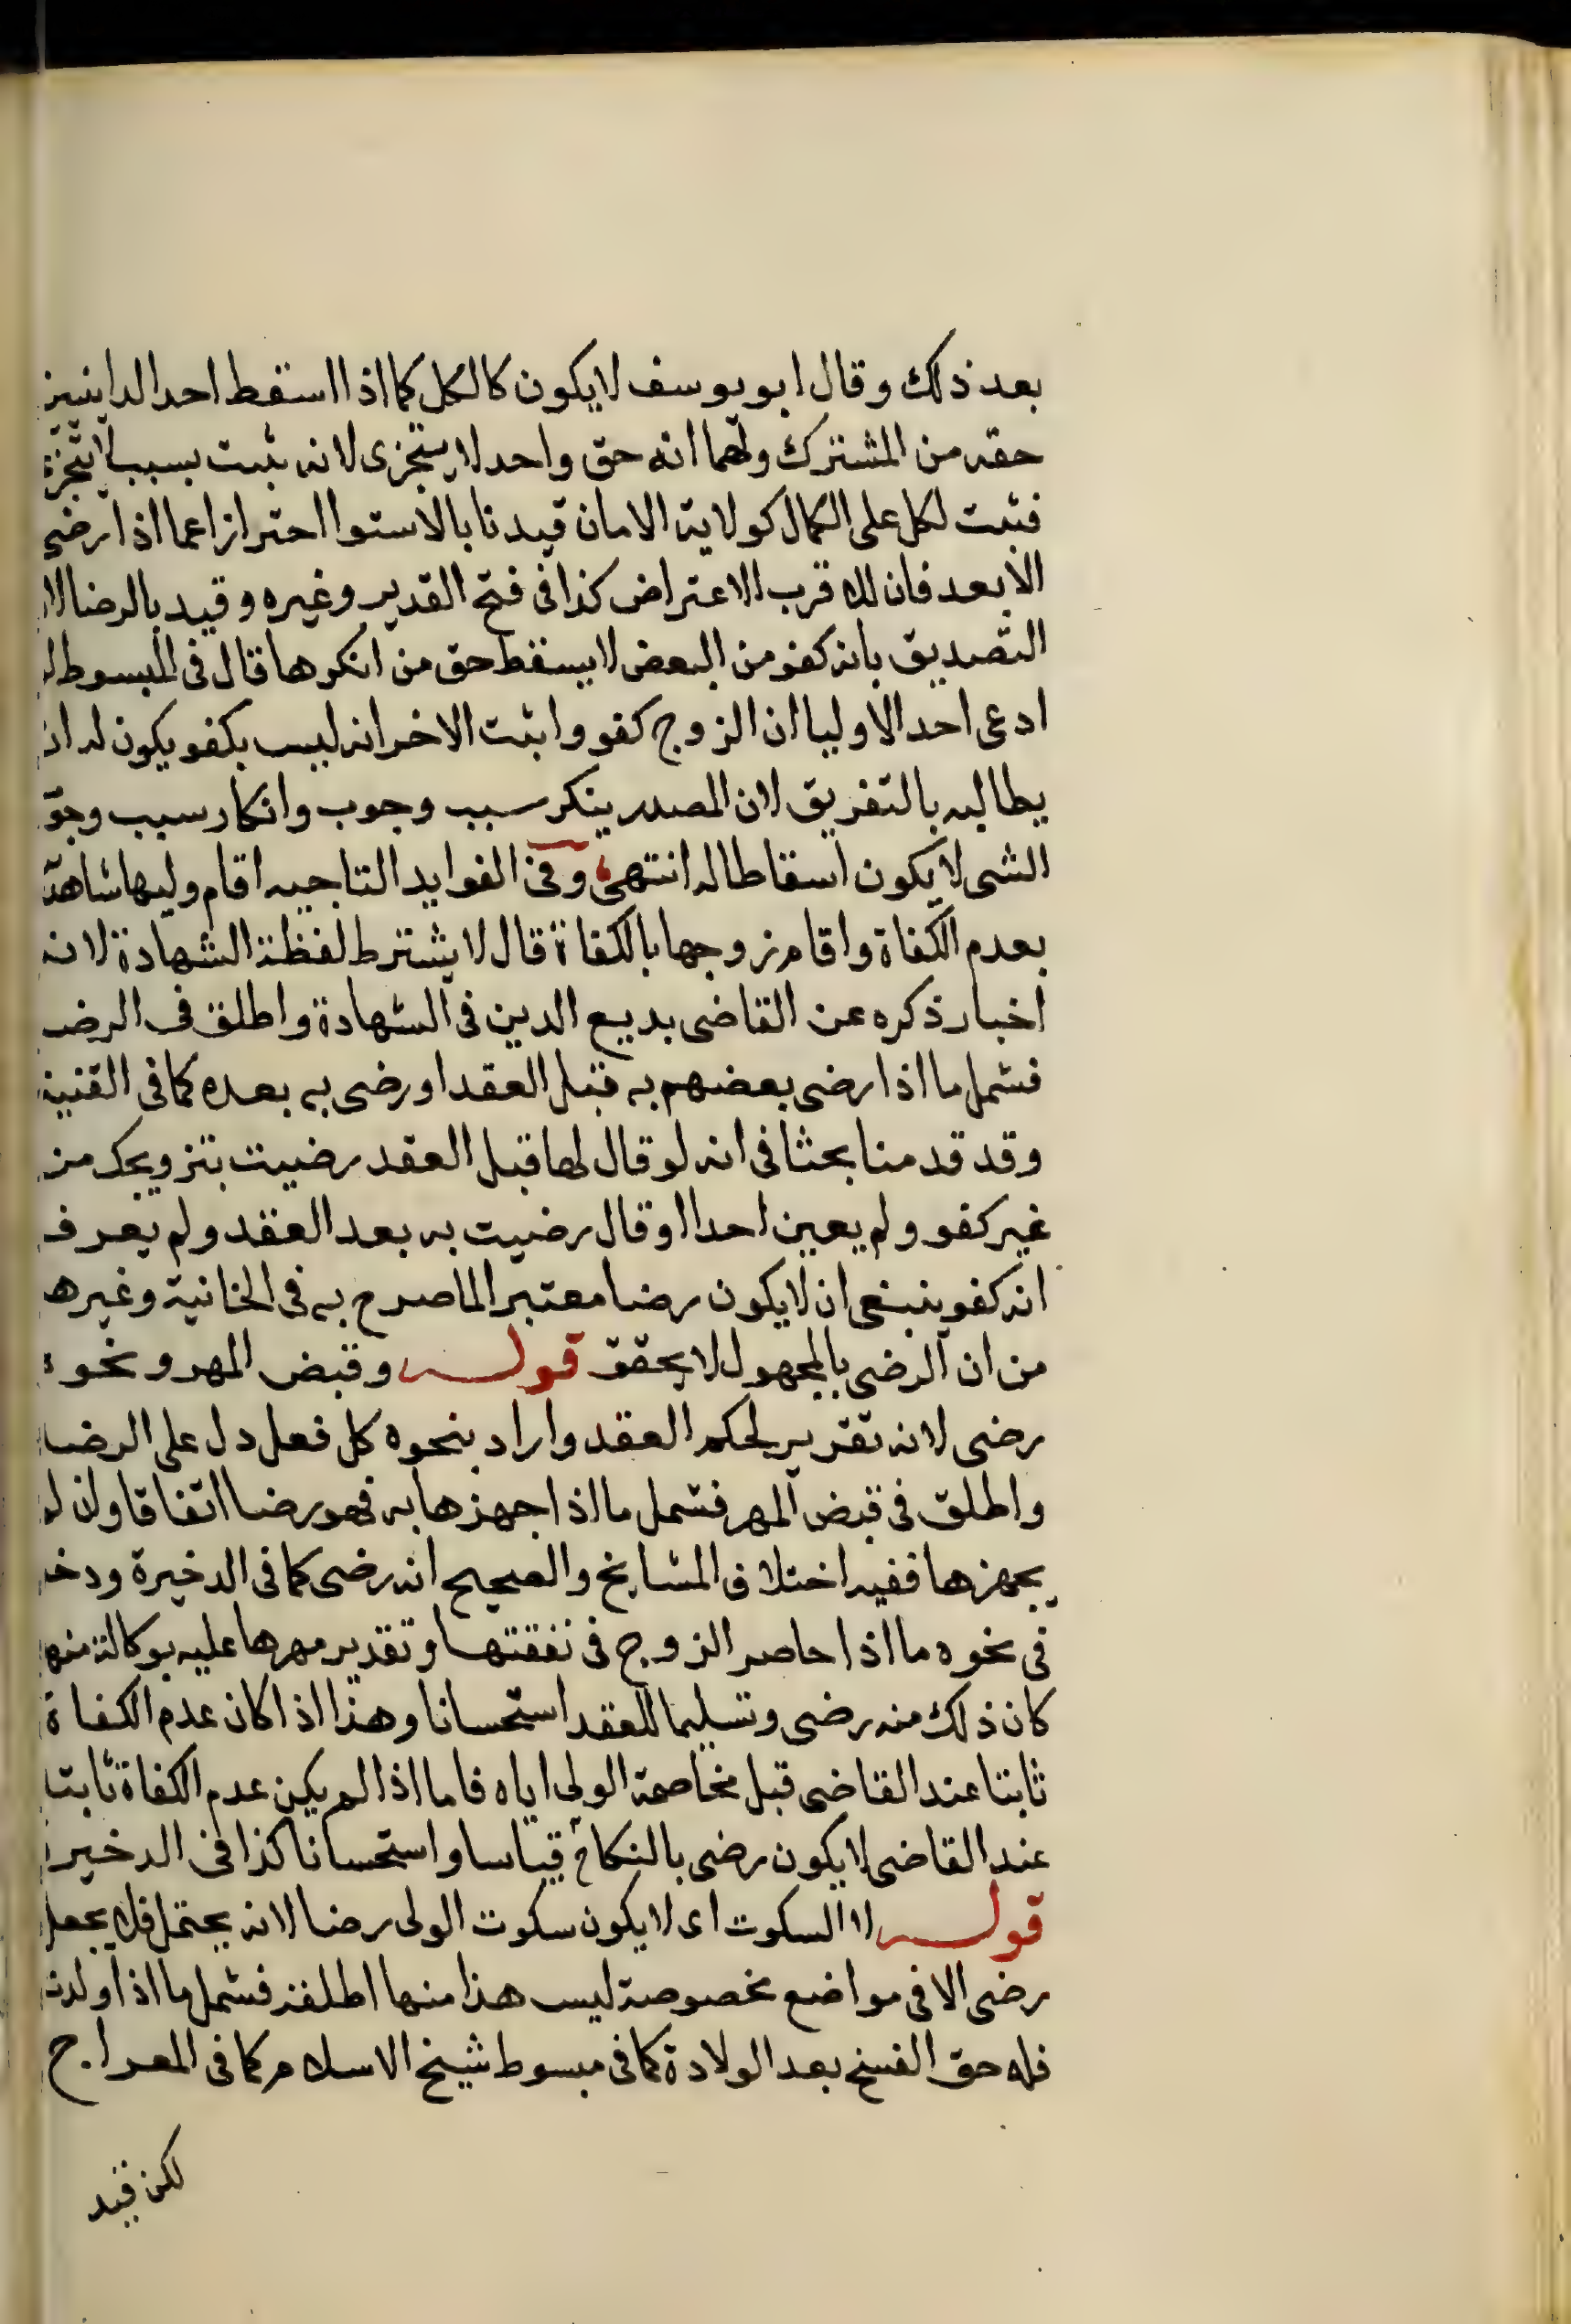 بعد ذلك وقال ابو يوسف لا يكون كالكل كما اذا اسقط احد الداينين
حقه من المشترك ولهما انه حق واحد لا يتجزى لانه ثبت بسبب لا يتجزء
فثبت لكل على الكمال كولاية الامان قيدنا بالاستوا احترازا عما اذا رضى
الابعد فان للاقرب الاعتراض كذا فى فتح القدير وغيره وقيد بالرضا لان
التصديق بانه كفو من البعض لا يسقط حق من انكرها قال فى المبسوط لو
ادعى احد الاوليا ان الزوج كفو واثبت الاخر انه ليس بكفو يكون له ان
يطالبه بالتفريق لان المصدر ينكر سبب وجوب وانكار سبب وجو
الشى لا يكون اسقاطا له انتهى وفى الفوايد التاجيه اقام وليها شاهد
بعدم الكفاة واقام زوجها بالكفاة قال لا يشترط لفظة الشهادة لانه
اخبار ذكره عن القاضى بديع الدين فى الشهادة واطلق فى الرض
فشمل ما اذا رضى بعضهم به قبل العقد او رضى به بعده كما فى القنية
وقد قدمنا بحثا فى انه لو قال لها قبل العقد رضيت بتزويجك من
غير كفو ولم يعين احدا او قال رضيت به بعد العقد ولم يعرف
انه كفو ينبغى ان لا يكون رضا معتبرا لما صرح به فى الخانية وغيرها
من ان الرضى بالمجهول لا يحقق قوله وقبض المهر ونحوه
رضى لانه تقرير لحكم العقد واراد بنحوه كل فعل دل على الرضا
واطلق فى قبض المهر فشمل ما اذا جهزها به فهو رضا اتفاقا وان لم
يجهزها ففيه اختلاف المشايخ والصحيح انه رضى كما فى الدخيرة ودخل
فى نحوه ما اذا خاصر الزوج فى نفقتها وتقدير مهرها عليه بوكالة منها
كان ذلك منه رضى وتسليما للعقد استحسانا وهذا اذا كان عدم الكفاة
ثابتا عند القاضى قبل مخاصمة الولى اياه فاما اذا لم يكن عدم الكفاة ثابتا
عند القاضى لا يكون رضى بالنكاح قياسا واستحسانا كذا فى الدخيرة
قوله لا السكوت اى لا يكون سكوت الولى رضا لانه يحتمل فلا يجعل
رضى الا فى مواضع مخصوصة ليس هذا منها اطلقه فشمل ما اذا ولدت
فله حق الفسخ بعد الولادة كما فى مبسوط شيخ الاسلام كما فى المعراج
لكن قيد